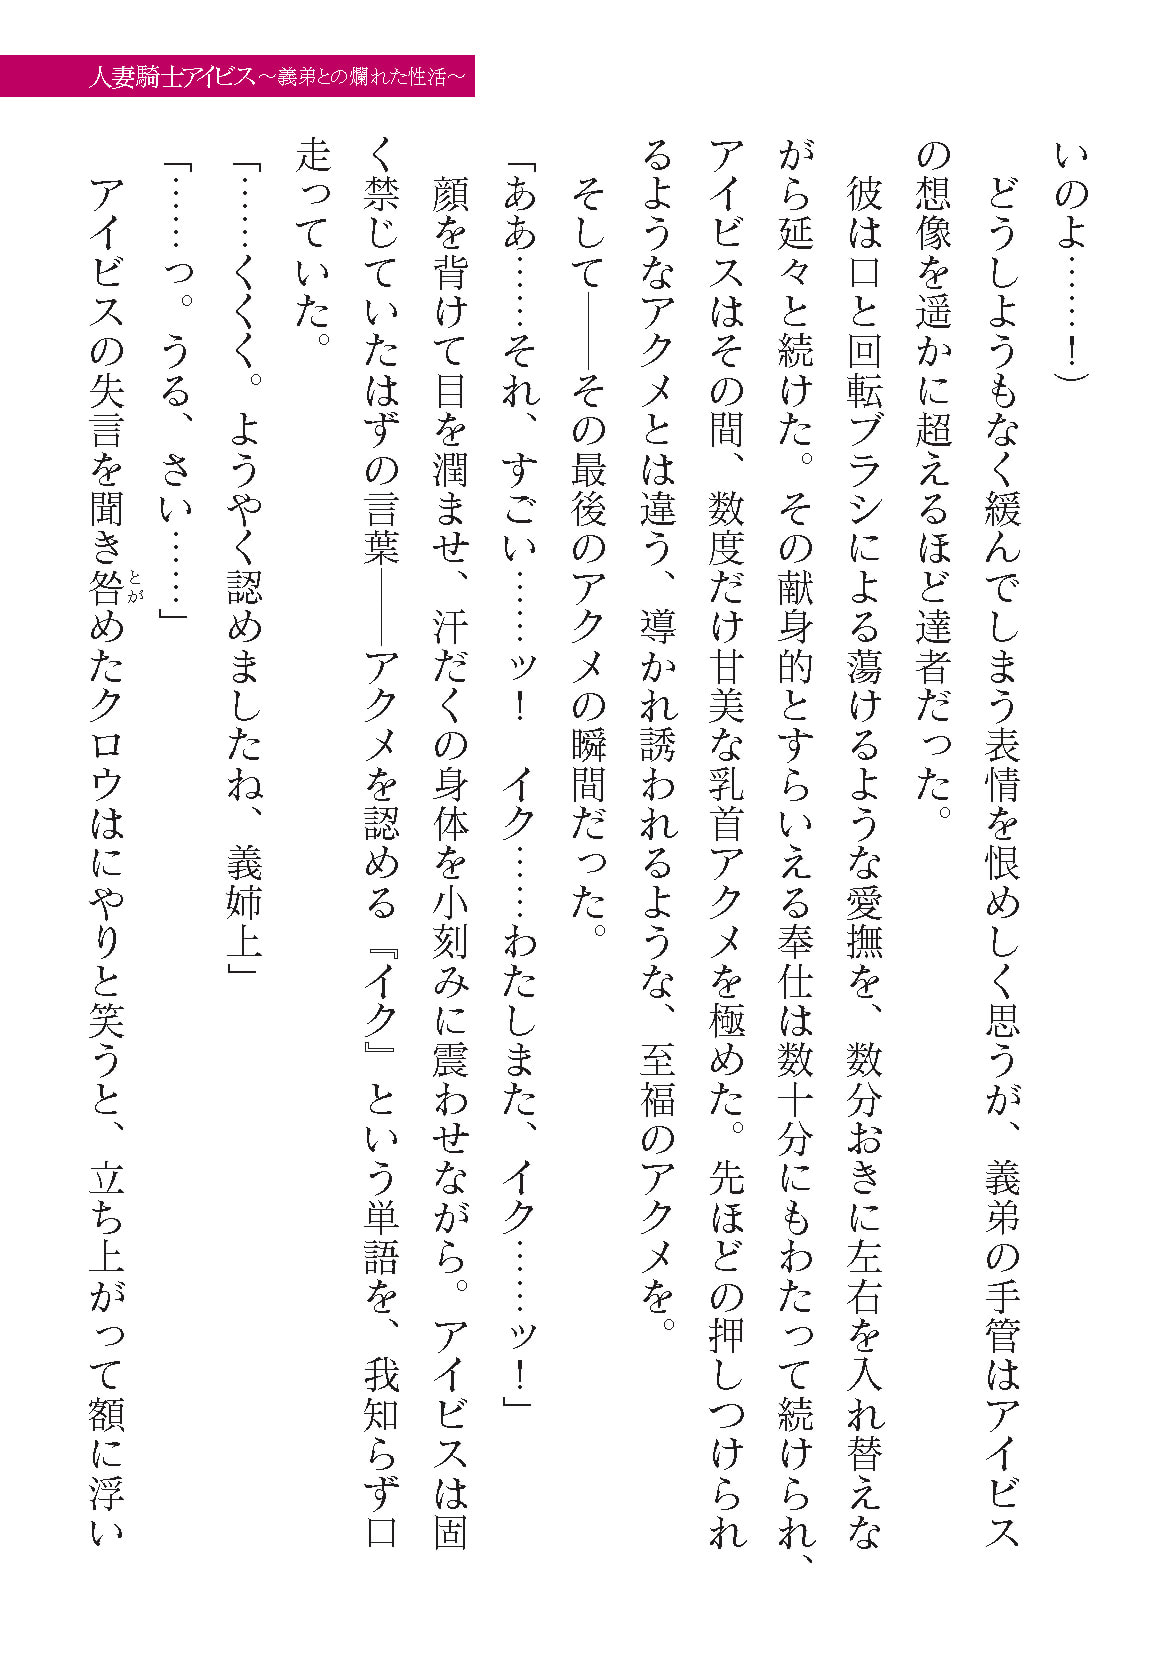 人妻騎士アイビス～義弟との爛れた性活～
いのよ……！）
　どうしようもなく緩んでしまう表情を恨めしく思うが、義弟の手管はアイビス
の想像を遥かに超えるほど達者だった。
　彼は口と回転ブラシによる蕩けるような愛撫を、数分おきに左右を入れ替えな
がら延々と続けた。その献身的とすらいえる奉仕は数十分にもわたって続けられ、
アイビスはその間、数度だけ甘美な乳首アクメを極めた。先ほどの押しつけられ
るようなアクメとは違う、導かれ誘われるような、至福のアクメを。
　そして――その最後のアクメの瞬間だった。
「ああ……それ、すごい……ッ！　イク……わたしまた、イク……ッ！」
　顔を背けて目を潤ませ、汗だくの身体を小刻みに震わせながら。アイビスは固
く禁じていたはずの言葉――アクメを認める『イク』という単語を、我知らず口
走っていた。
「……くくく。ようやく認めましたね、義姉上」
「……っ。うる、さい……」
　アイビスの失言を聞き咎とがめたクロウはにやりと笑うと、立ち上がって額に浮い